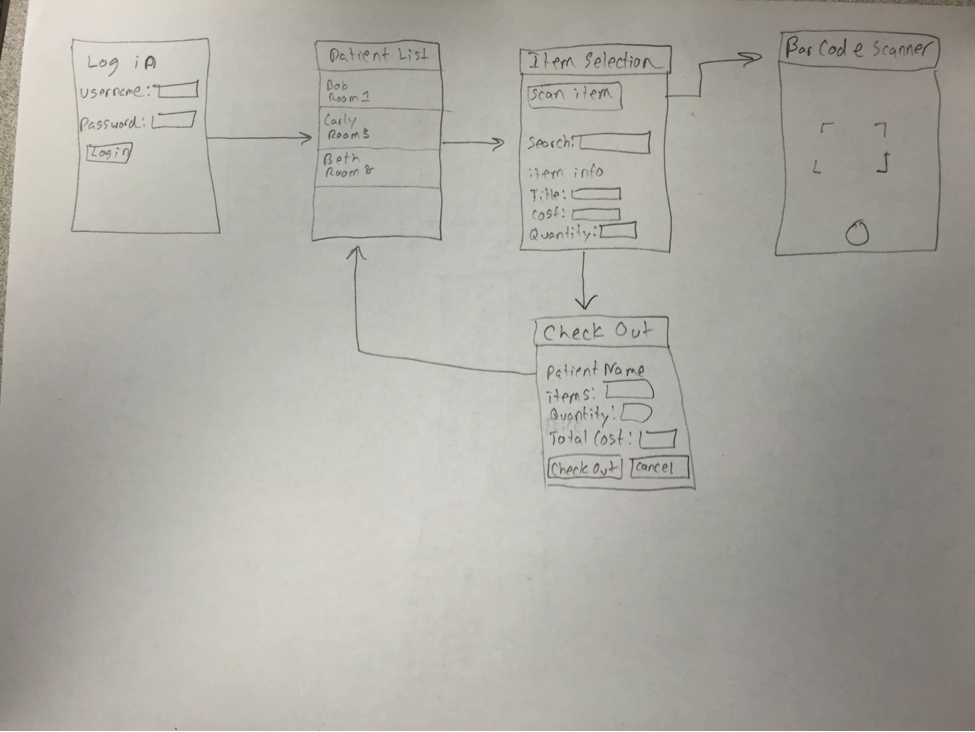 Log in
Username:
Password:
Login
Patient List
Bob
Room 1
Carly
Room 5
Beth
Room 8
Item Selection
Scan item
Search:
item info
Title:
Cost:
Quantity:
BarCode Scanner
Check Out
Patient Name
items:
Quantity:
Total Cost:
Check Out
Cancel